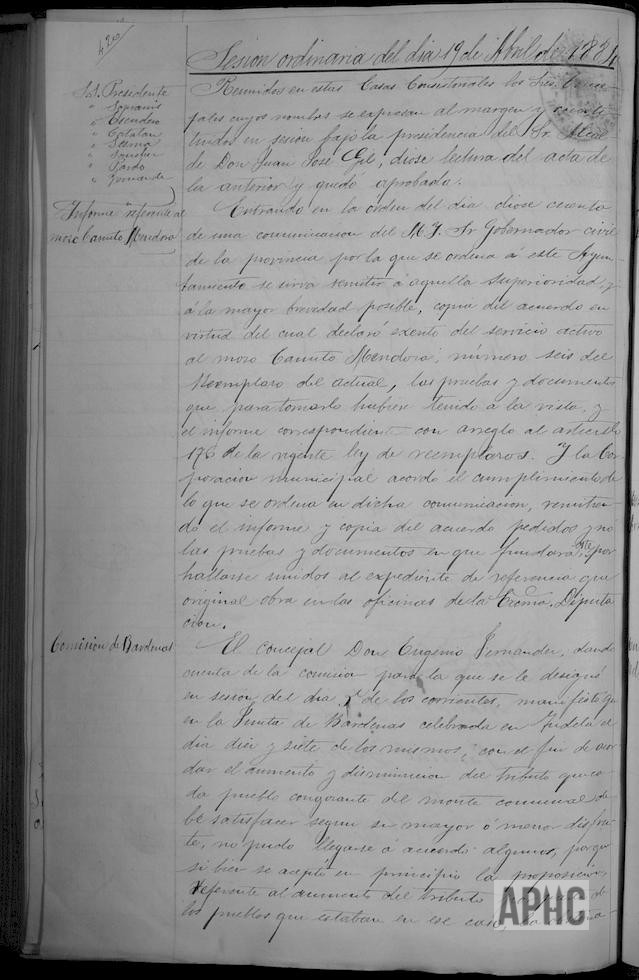 420
Sesion ordinaria del dia 19 de Abril de 1884
S.S. Presidente
" Escudero
" Catalan
" Sesma
" Sanchez
" Pardo
Reunidos en estas Casas Consistoriales los Sres. Conce-
jales cuyos nombres se expresan al margen y consti-
tuidos en sesion bajo la presidencia del Sr. Alcal
de Don Juan José Gil, diose lectura del acta de
la anterior y quedó aprobada.
Informe referente al
mozo Canuto Mendoza
Entrando en la orden del dia diose cuenta
de una comunicacion del M. Y. Sr Gobernador civil
de la provincia por la que se ordena á este Ayun-
tamiento se sirva remitir á aquella Superioridad, y
á la mayor brevedad posible, copia del acuerdo en
virtud del cual declaró exento del servicio activo
al mozo Canuto Mendoza, número seis del
Reemplazo del actual, las pruebas y documentos
que para tomarlo hubiese tenido á la vista, y
el informe correspondiente con arreglo al articulo
176 de la vigente ley de reemplazos. Y la Cor
poracion municipal acordó el cumplimiento de
lo que se ordena en dicha comunicacion, remitien
do el informe y copia del acuerdo pedidos y no
las pruebas y documentos en que fundara este por
hallarse unidos al expediente de referencia que
original obra en las oficinas de la Excma. Diputa
cion.
Comision de Bardenas
El concejal Don Eugenio Fernandez, dando
cuenta de la comision para la que se le designó
en sesion del dia de los corrientes, manifestó que
en la Junta de Bardenas celebrada en Tudela el
dia diez y siete de los mismos, con el fin de acor
dar el aumento y disminucion del tributo que ca
da pueblo congozante del monte comunal de
be satisfacer segun su mayor ó menor disfru
te, no pudo llegarse á acuerdo alguno, porque
si bien se aceptó en principio la proposicion
referente al aumento del tributo por parte de
los pueblos que estaban en ese caso, la
APHC